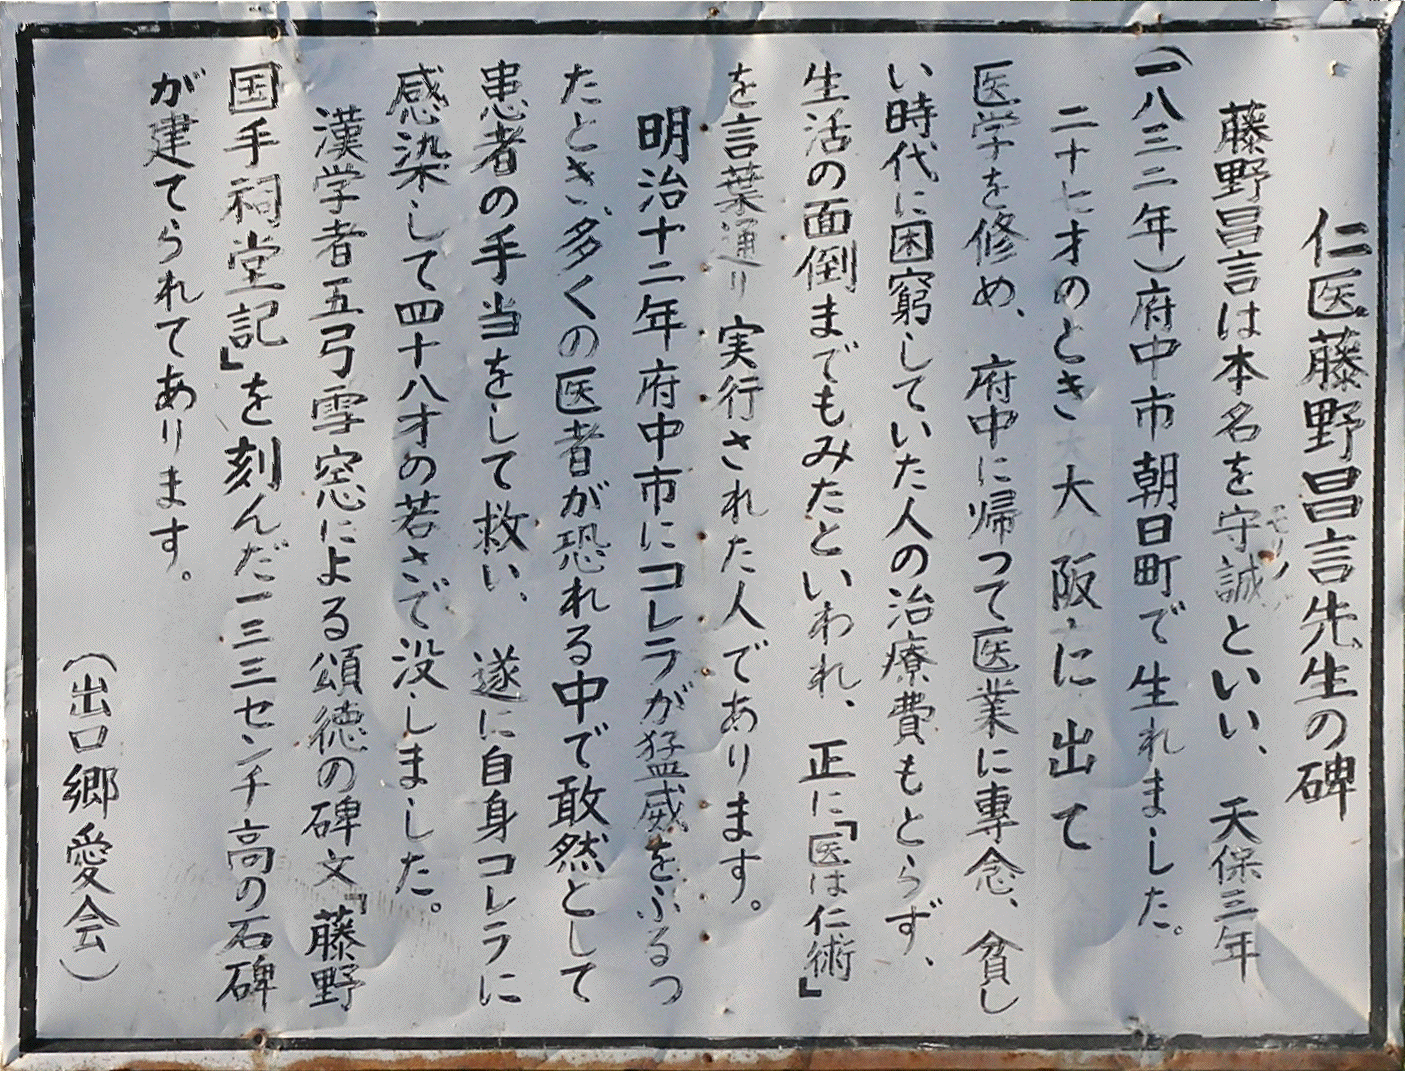 仁医藤野昌言先生の碑
藤野昌言は本名を守誠といい、天保三年
(一八三二年)府中市朝日町で生れました。
二十七才のとき大阪に出て
医学を修め、府中に帰って医業に専念、貧し
い時代に困窮していた人の治療費もとらず、
生活の面倒までもみたといわれ、正に「医は仁術」
を言葉通り実行された人であります。
明治十二年府中市にコレラが猛威をふるっ
たとき、多くの医者が恐れる中で敢然として
患者の手当をして救い、遂に自身コレラに
感染して四十八才の若さで没しました。
漢学者五弓雪窓による頌徳の碑文「藤野
国手祠堂記」を刻んだ一三三センチ高の石碑
が建てられてあります。
(出口郷愛会)